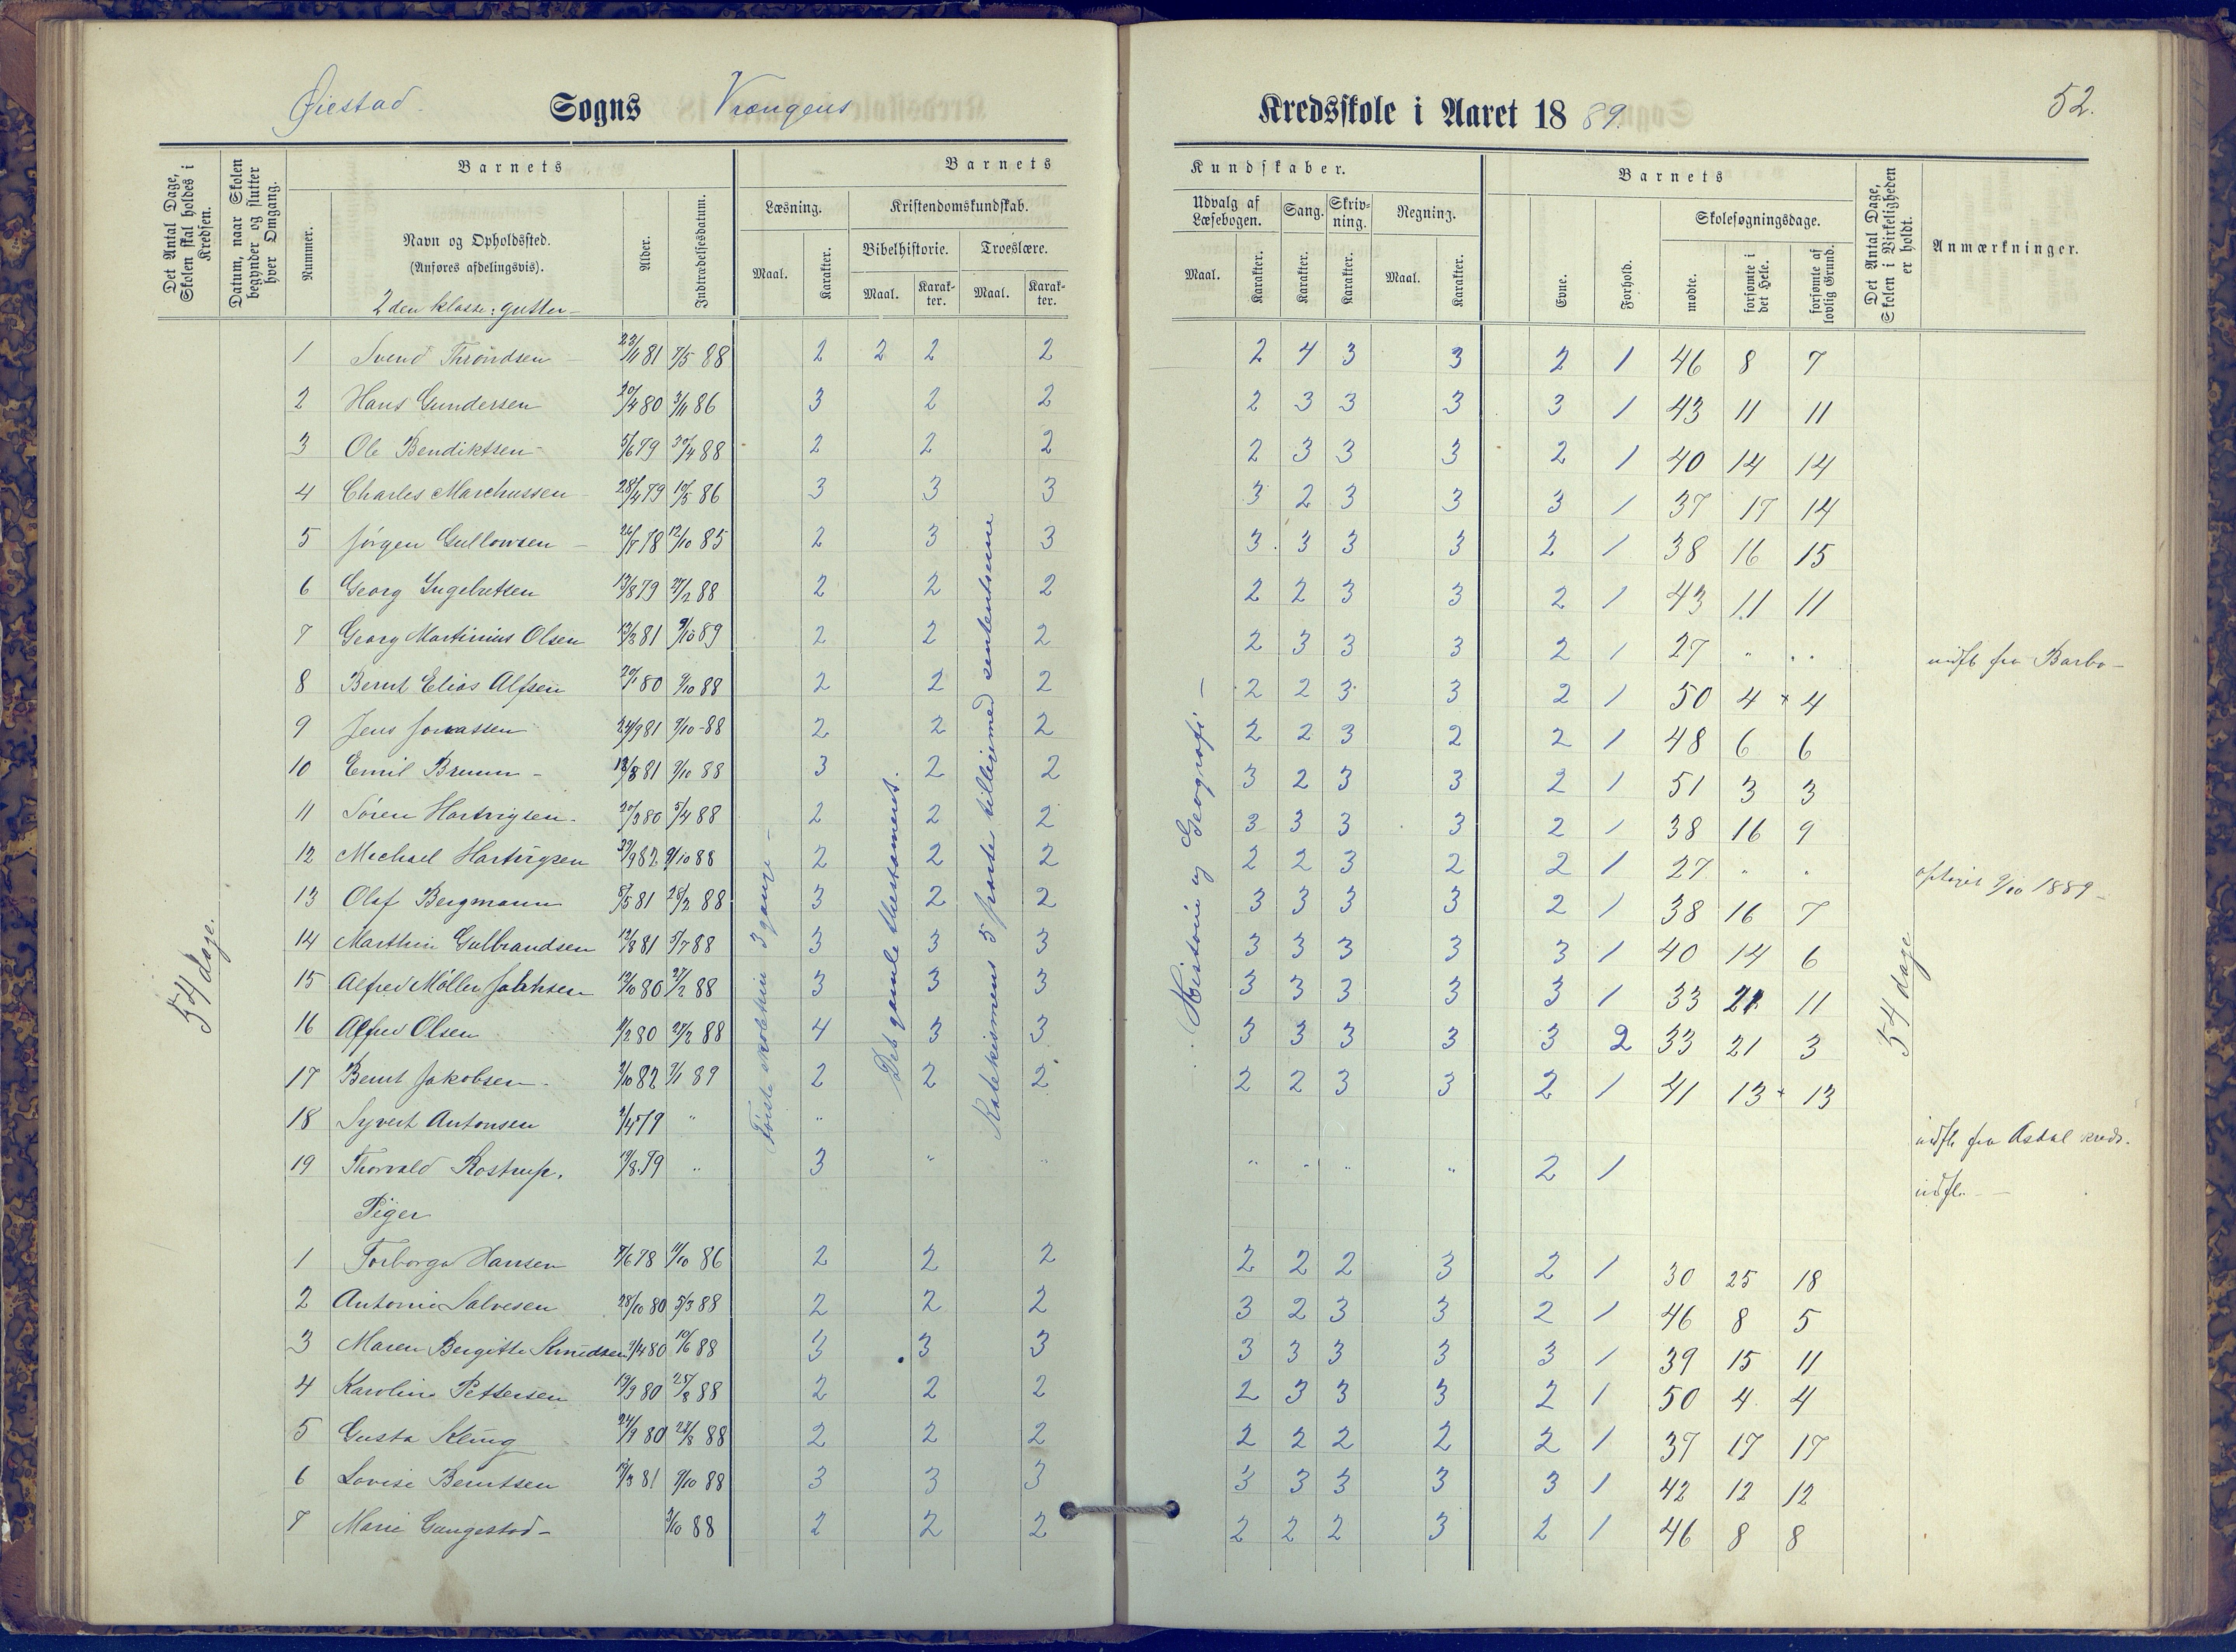 Øiestad. Sogns Vrængens Kredsskole i Aaret 1889. 52.
Det Antal Dage, Skolen skal holdes i Kredsen.
Datum, naar Skolen begynder og slutter hver Omgang.
Barnets
Nummer.
Navn og Opholdssted.
(Anføres afdelingsvis).
Alder.
Indtrædelsesdatum.
Barnets Kundskaber.
Læsning.
Maal. Karakter.
Kristendomskundskab.
Bibelhistorie. Troeslære.
Maal. Karakter. Maal. Karakter.
Udvalg af Læsebogen. Sang. Skrivning. Regning.
Maal. Karakter. Karakter. Karakter. Maal. Karakter.
Barnets
Evne. Forhold.
Skolesøgningsdage.
mødte. forsømte i det Hele. forsømte af lovlig Grund.
Det Antal Dage, Skolen i Virkeligheden er holdt.
Anmærkninger.
2den klasse: gutter
1 Svend Throndsen 23/11 81 7/5 88 2 2 2 2 2 4 3 3 2 1 46 8 7
2 Hans Gundersen 20/4 80 3/11 86 3 2 2 2 3 3 3 3 1 43 11 11
3 Ole Bendiktsen 5/6 79 30/4 88 2 2 2 2 3 3 3 2 1 40 14 14
4 Charles Marchussen 28/4 79 10/5 86 3 3 3 3 2 3 3 3 1 37 17 14
5 Jørgen Gullowsen 78 12/10 85 2 3 3 3 3 3 3 2 1 38 16 15
6 Georg Ingebretsen 13/8 79 27/2 88 2 2 2 2 2 3 3 2 1 43 11 11
7 Georg Martinius Olsen 13/3 81 9/10 89 2 2 2 2 3 3 3 2 1 27 " " indfl. fra Barbo
8 Bernt Elias Alfsen 80 9/10 88 2 2 2 2 2 3 3 2 1 50 4 4
9 Jens Jonassen 24/9 81 9/10 88 2 2 2 2 2 3 2 2 1 48 6 6
10 Emil Bruun 18/8 81 9/10 88 3 2 2 3 2 3 3 2 1 51 3 3
11 Søren Hartvigsen 20/3 80 5/4 88 2 2 2 3 3 3 3 2 1 38 16 9
12 Michael Hartvigsen 82 9/10 88 2 2 2 2 2 3 2 2 1 27 " " 9/10 1889
13 Olaf Bergmann 8/5 81 28/2 88 3 2 2 3 3 3 3 2 1 38 16 7
14 Marthin Gulbrandsen 12/8 81 5/7 88 3 3 3 3 3 3 3 3 1 40 14 6
15 Alfred Møller 12/10 80 27/2 88 3 3 3 3 3 3 3 3 1 33 21 11
16 Alfred Olsen 80 27/2 88 4 3 3 3 3 3 3 3 2 33 21 3
17 Bernt Jakobsen 2/10 82 89 2 2 2 2 2 3 3 2 1 41 13 13
18 Syvert Antonsen 2/4 79 " " udfl. fra Asdal kreds.
19 Thorvald Rostrup. 79 " 3 " " " " " " 2 1 udfl.
Piger
1 Torborga Hansen 7/6 78 11/10 86 2 2 2 2 2 2 3 2 1 30 25 18
2 Antonie Salvesen 28/10 80 5/3 88 2 2 2 3 2 3 3 2 1 46 8 5
3 Maren Bergitte Knudsen 80 10/6 88 3 3 3 3 3 3 3 3 1 39 15 11
4 Karoline Pettersen 19/9 80 25/8 88 2 2 2 2 3 3 3 2 1 50 4 4
5 Gusta Kling 24/9 80 88 2 2 2 2 2 2 2 2 1 37 17 17
6 Lovise Berntsen 81 9/10 88 3 3 3 3 3 3 3 3 1 42 12 12
7 Marie Gangestad 3/10 88 2 2 2 2 2 2 3 2 1 46 8 8
54 dage.
Første 3 gange
Det gamle thestamenet.
Katekismens 5 parter tilligemed sententserne
Historie og Geografi
54 dage